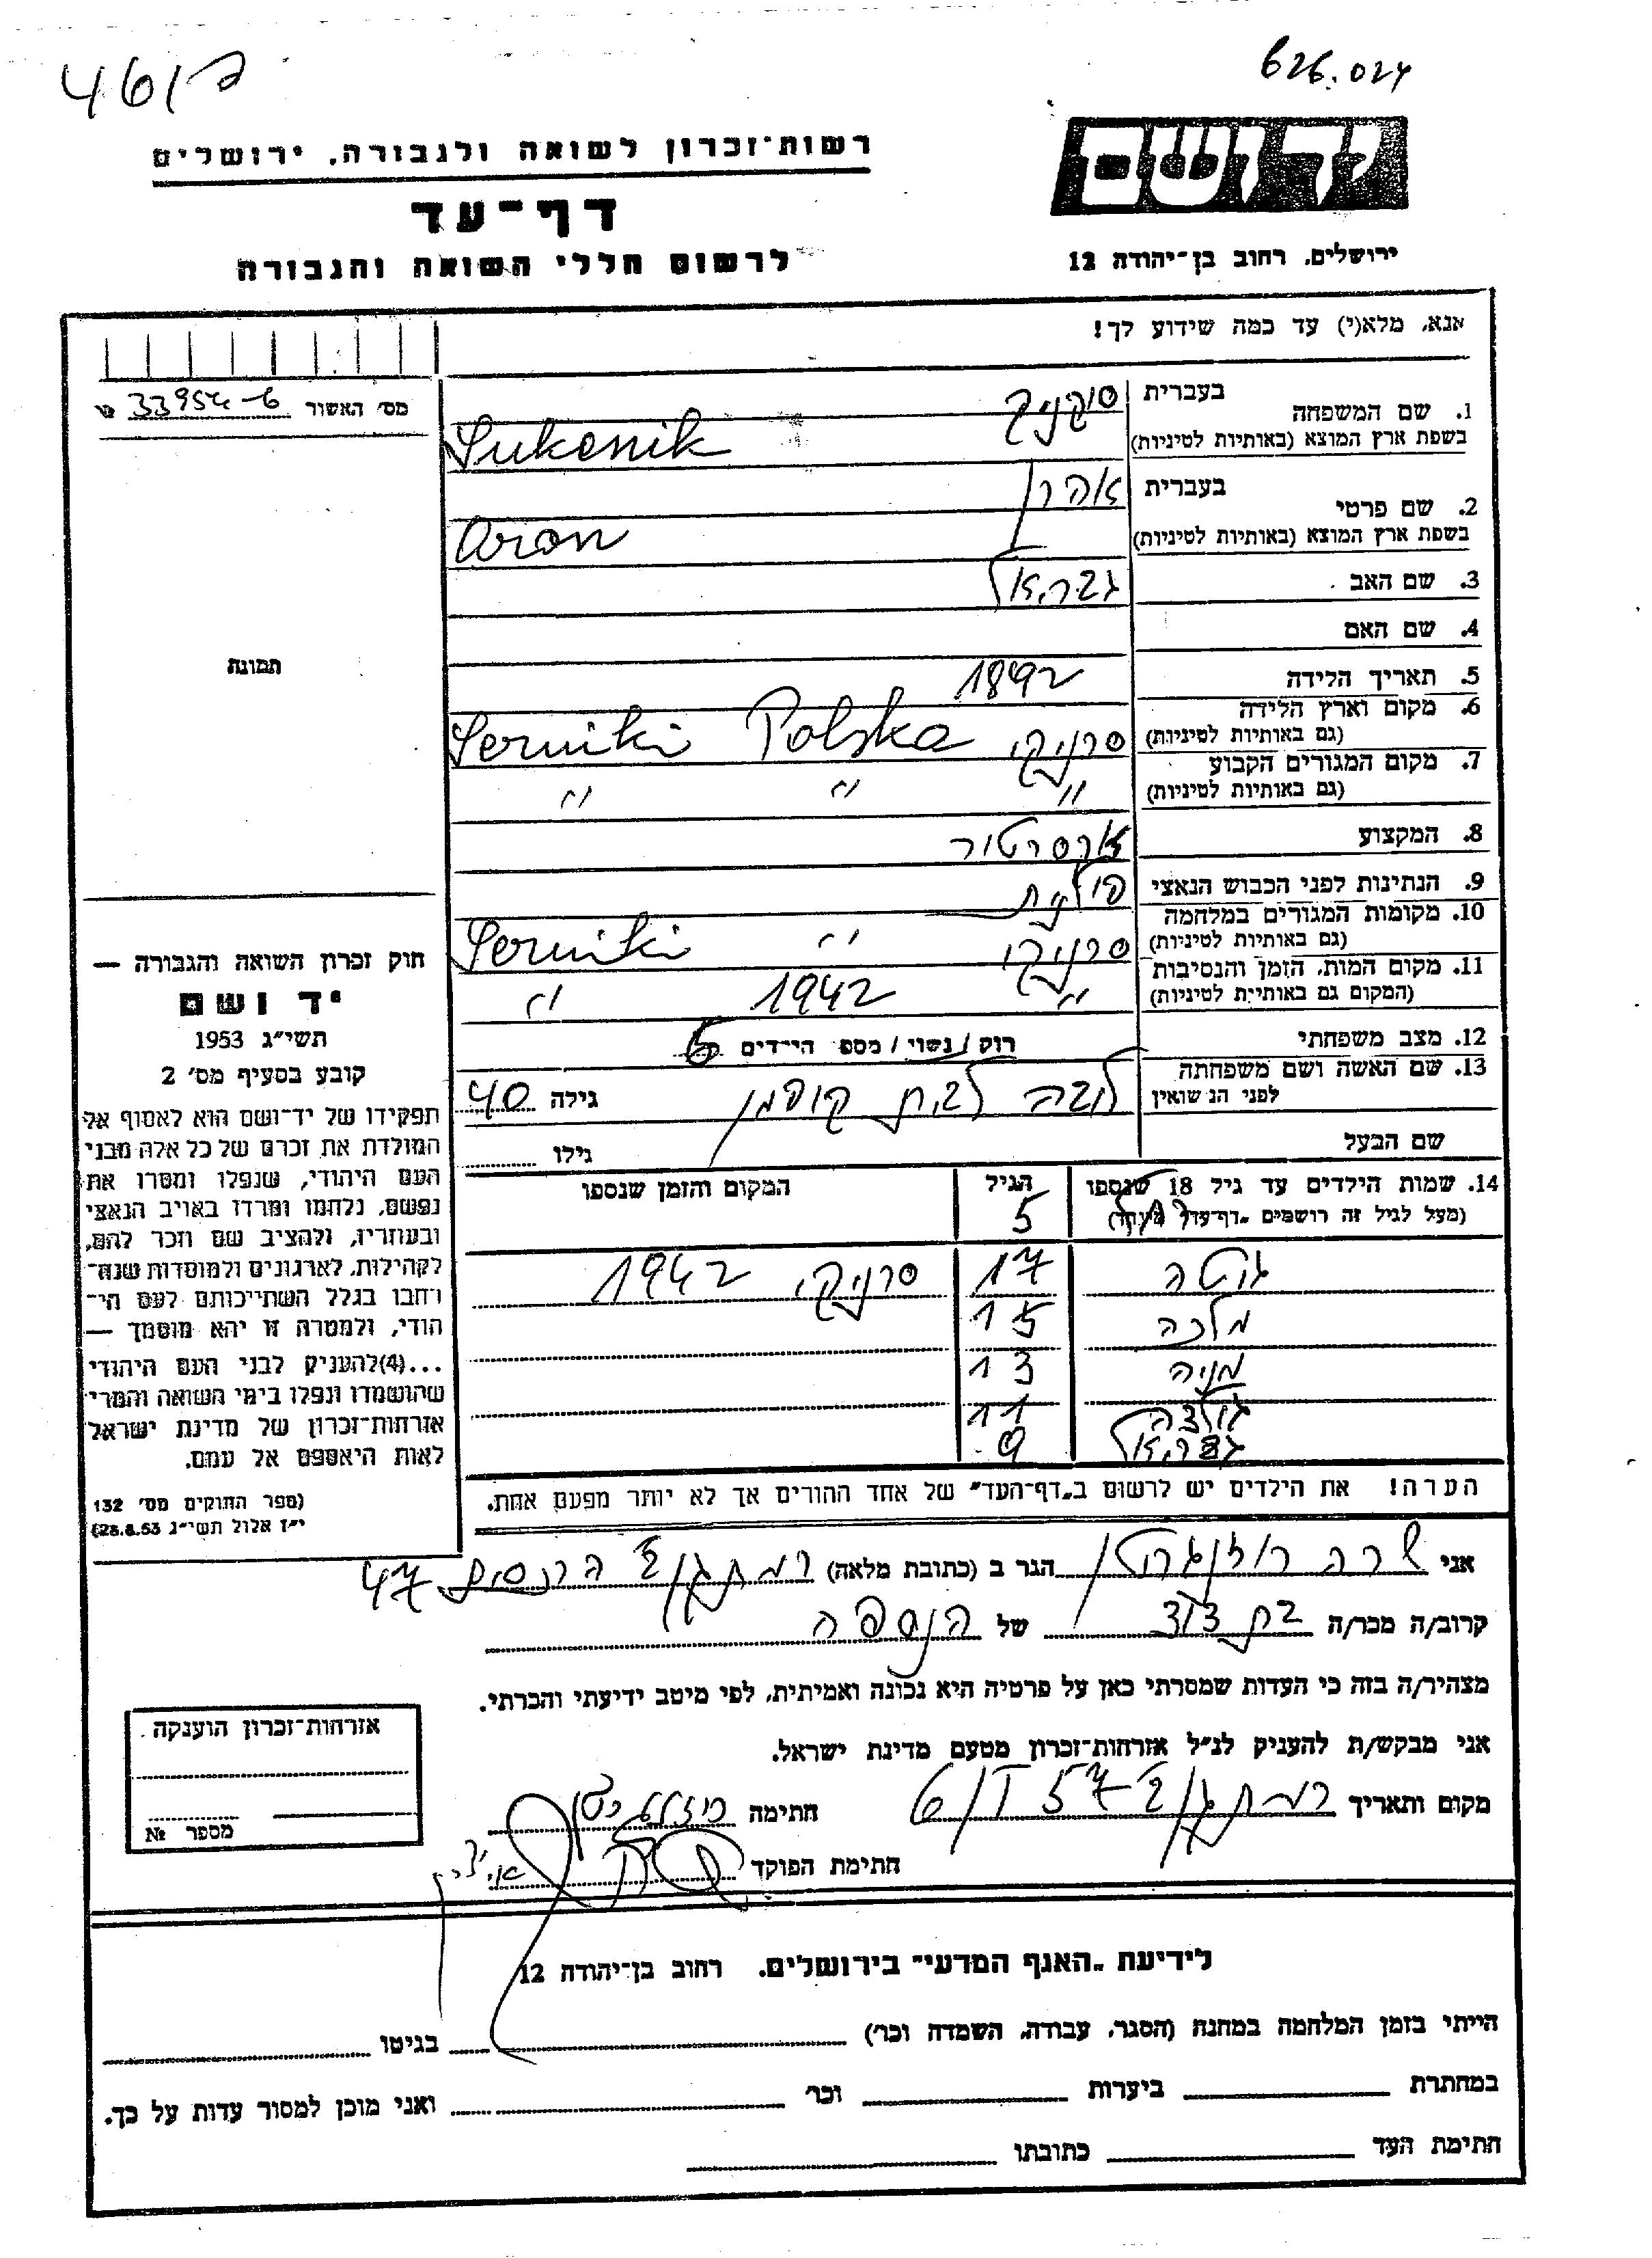 461ק
626.024
רשות־זכרון לשואה ולגבורה, ירושלים
דף־עד
לרשום חללי השואה והגבורה
ידושם
ירושלים, רחוב בן־יהודה 12
אנא, מלא(י) עד כמה שידוע לך!
מס׳ האשור 33954-6
1. שם המשפחה בעברית סוקניק
בשפת ארץ המוצא (באותיות לטיניות) Sukenik
2. שם פרטי בעברית אהרן
בשפת ארץ המוצא (באותיות לטיניות) Aron
3. שם האב גבריאל
4. שם האם
5. תאריך הלידה 1892
6. מקום וארץ הלידה (גם באותיות לטיניות) סרניקי Serniki Polska
7. מקום המגורים הקבוע (גם באותיות לטיניות) " " "
8. המקצוע
9. הנתינות לפני הכבוש הנאצי פולנית
10. מקומות המגורים במלחמה (גם באותיות לטיניות) סרניקי " Serniki
11. מקום המות, הזמן והנסיבות (המקום גם באותיות לטיניות) " 1942 "
12. מצב משפחתי רוק / נשוי / מספ הילדים 6
13. שם האשה ושם משפחתה לפני הנשואין לובה לבית קופמן גילה 40
שם הבעל גילו
14. שמות הילדים עד גיל 18 שנספו הגיל המקום והזמן שנספו
(מעל לגיל זה רושמים „דף־עד" מיוחד) רחל 5
גוטה 17 סרניקי 1942
מלכה 15
מניה 13
גולדה 11
גבריאל 9
הערה! את הילדים יש לרשום ב„דף־העד" של אחד ההורים אך לא יותר מפעם אחת.
תמונה
חוק זכרון השואה והגבורה —
יד ושם
תשי״ג 1953
קובע בסעיף מס׳ 2
תפקידו של יד־ושם הוא לאסוף אל
המולדת את זכרם של כל אלה מבני
העם היהודי, שנפלו ומסרו את
נפשם, נלחמו ומרדו באויב הנאצי
ובעוזריו, ולהציב שם וזכר להם,
לקהילות, לארגונים ולמוסדות שנה־
רחבו בגלל השתייכותם לעם הי־
הודי, ולמטרה זו יהא מוסמך —
...(4)להעניק לבני העם היהודי
שהושמדו ונפלו בימי השואה והמרי
אזרחות־זכרון של מדינת ישראל
לאות היאספם אל עמם.
(ספר החוקים מס׳ 132
י״ז אלול תשי״ג 28.8.53)
אני שרה רוזנגרטן הגר ב (כתובת מלאה) רמת גן הרנסים 47
קרוב/ה מכר/ה בת דוד של הנספה
מצהיר/ה בזה כי העדות שמסרתי כאן על פרטיה היא נכונה ואמיתית, לפי מיטב ידיעתי והכרתי.
אני מבקש/ת להעניק לנ״ל אזרחות־זכרון מטעם מדינת ישראל.
מקום ותאריך רמת גן 6/I 57 חתימה
חתימת הפוקד
אזרחות־זכרון הוענקה
מספר №
לידיעת „האגף המדעי" בירושלים, רחוב בן־יהודה 12
הייתי בזמן המלחמה במחנה (הסגר, עבודה, השמדה וכר׳) בגיטו
במחתרת ביערות וכר׳ ואני מוכן למסור עדות על כך.
חתימת העד כתובתו